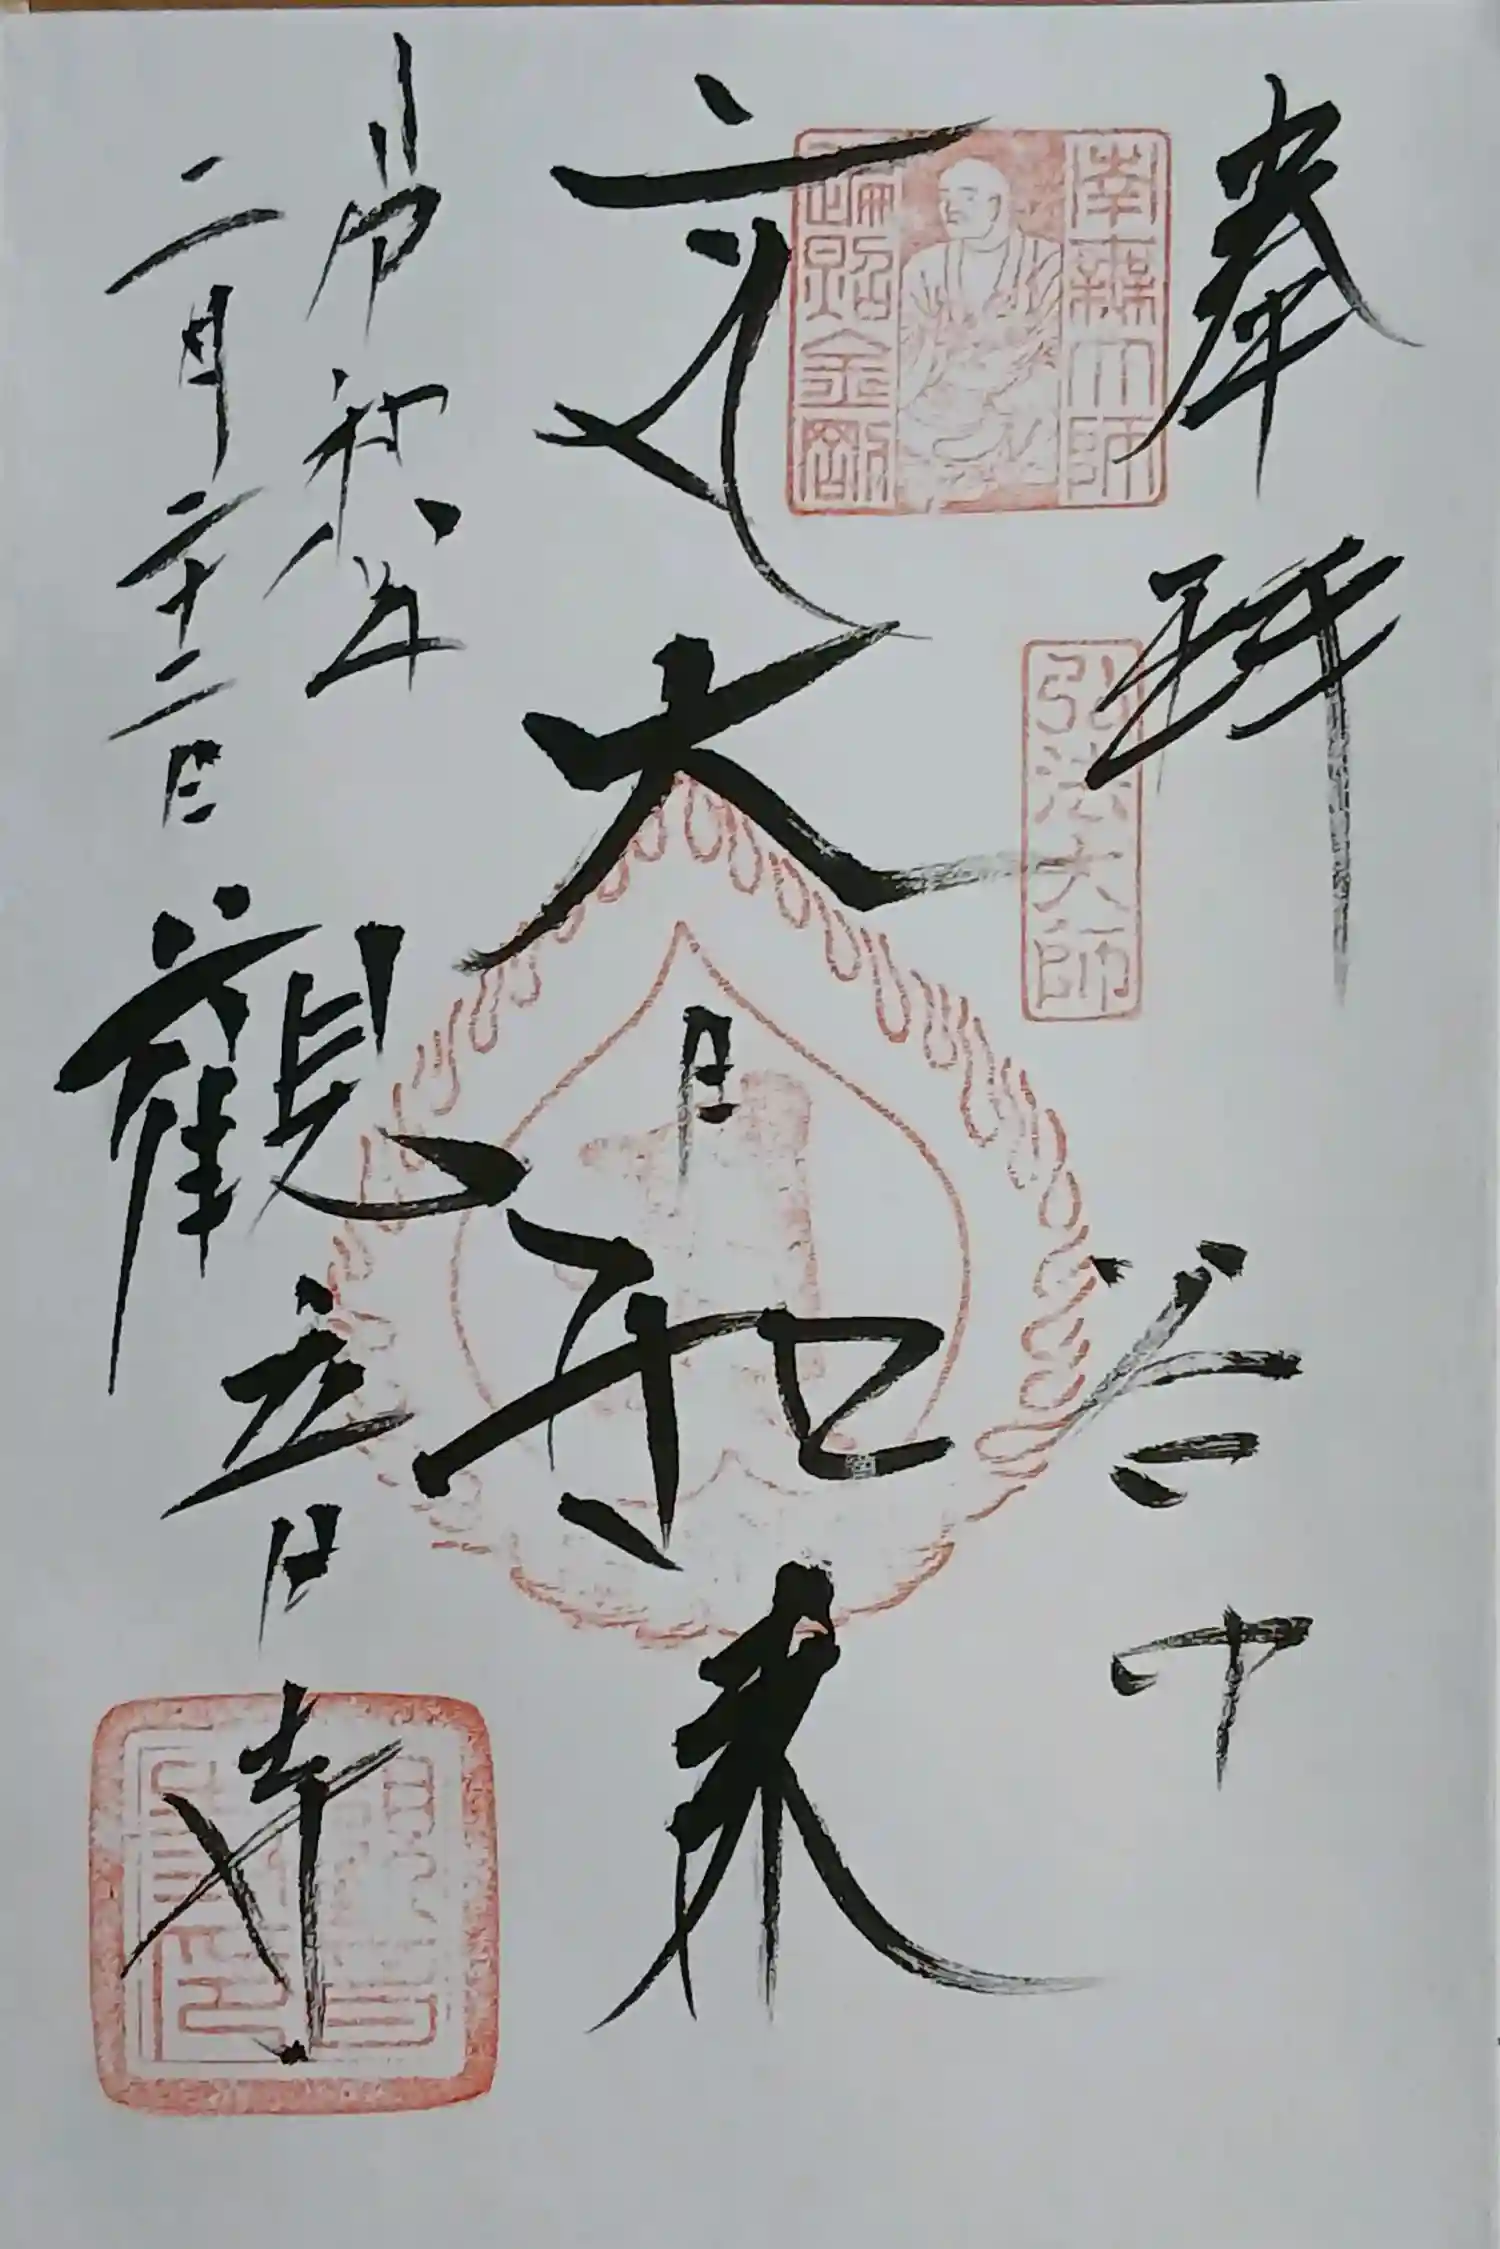 奉拝
谷中
南無大師
遍照金剛
弘法大師
大日如来
令和
二月二十二日
觀音寺